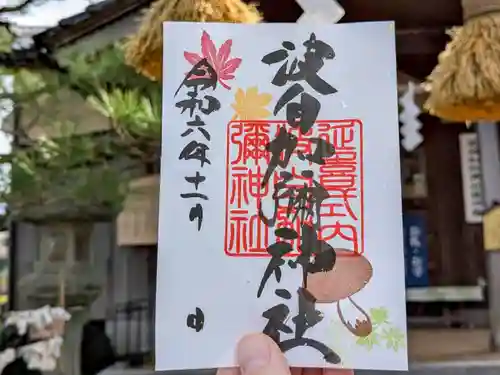 波自加彌神社
延喜式内
波自加
彌神社
令和六年十一月 日